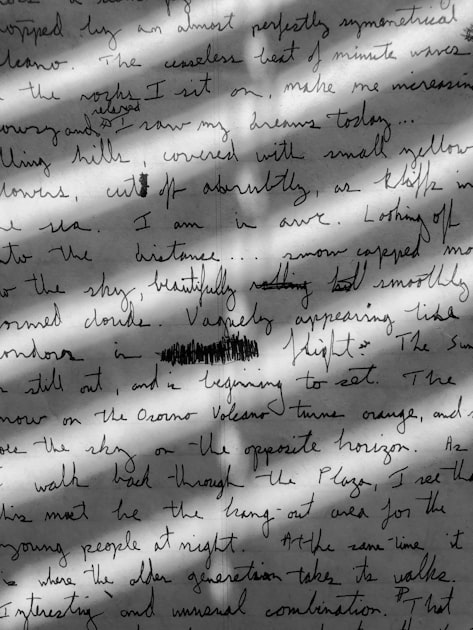 topped by an almost perfectly symmetrical
lcano. The ceaseless beat of minute waves
the rocks I sit on, make me increasin
relaxed
owsy and I saw my dreams today...
lling hills, covered with small yellow
lowers, cut off abruptly, as kliffs in
he sea. I am in awe. Looking off
nto the distance... snow capped mo
o the sky, beautifully smoothly
ormed clouds. Vaguely appearing like
ondors in flight. The Sun
s still out, and is beginning to set. The
now on the Osorno Volcano turns orange, and
oes the sky on the opposite horizon. As
I walk back through the Plaza, I see tha
his must be the hang-out area for the
young people at night. At the same time, it
is where the older generation takes its walks.
Interesting and unusual combination. That